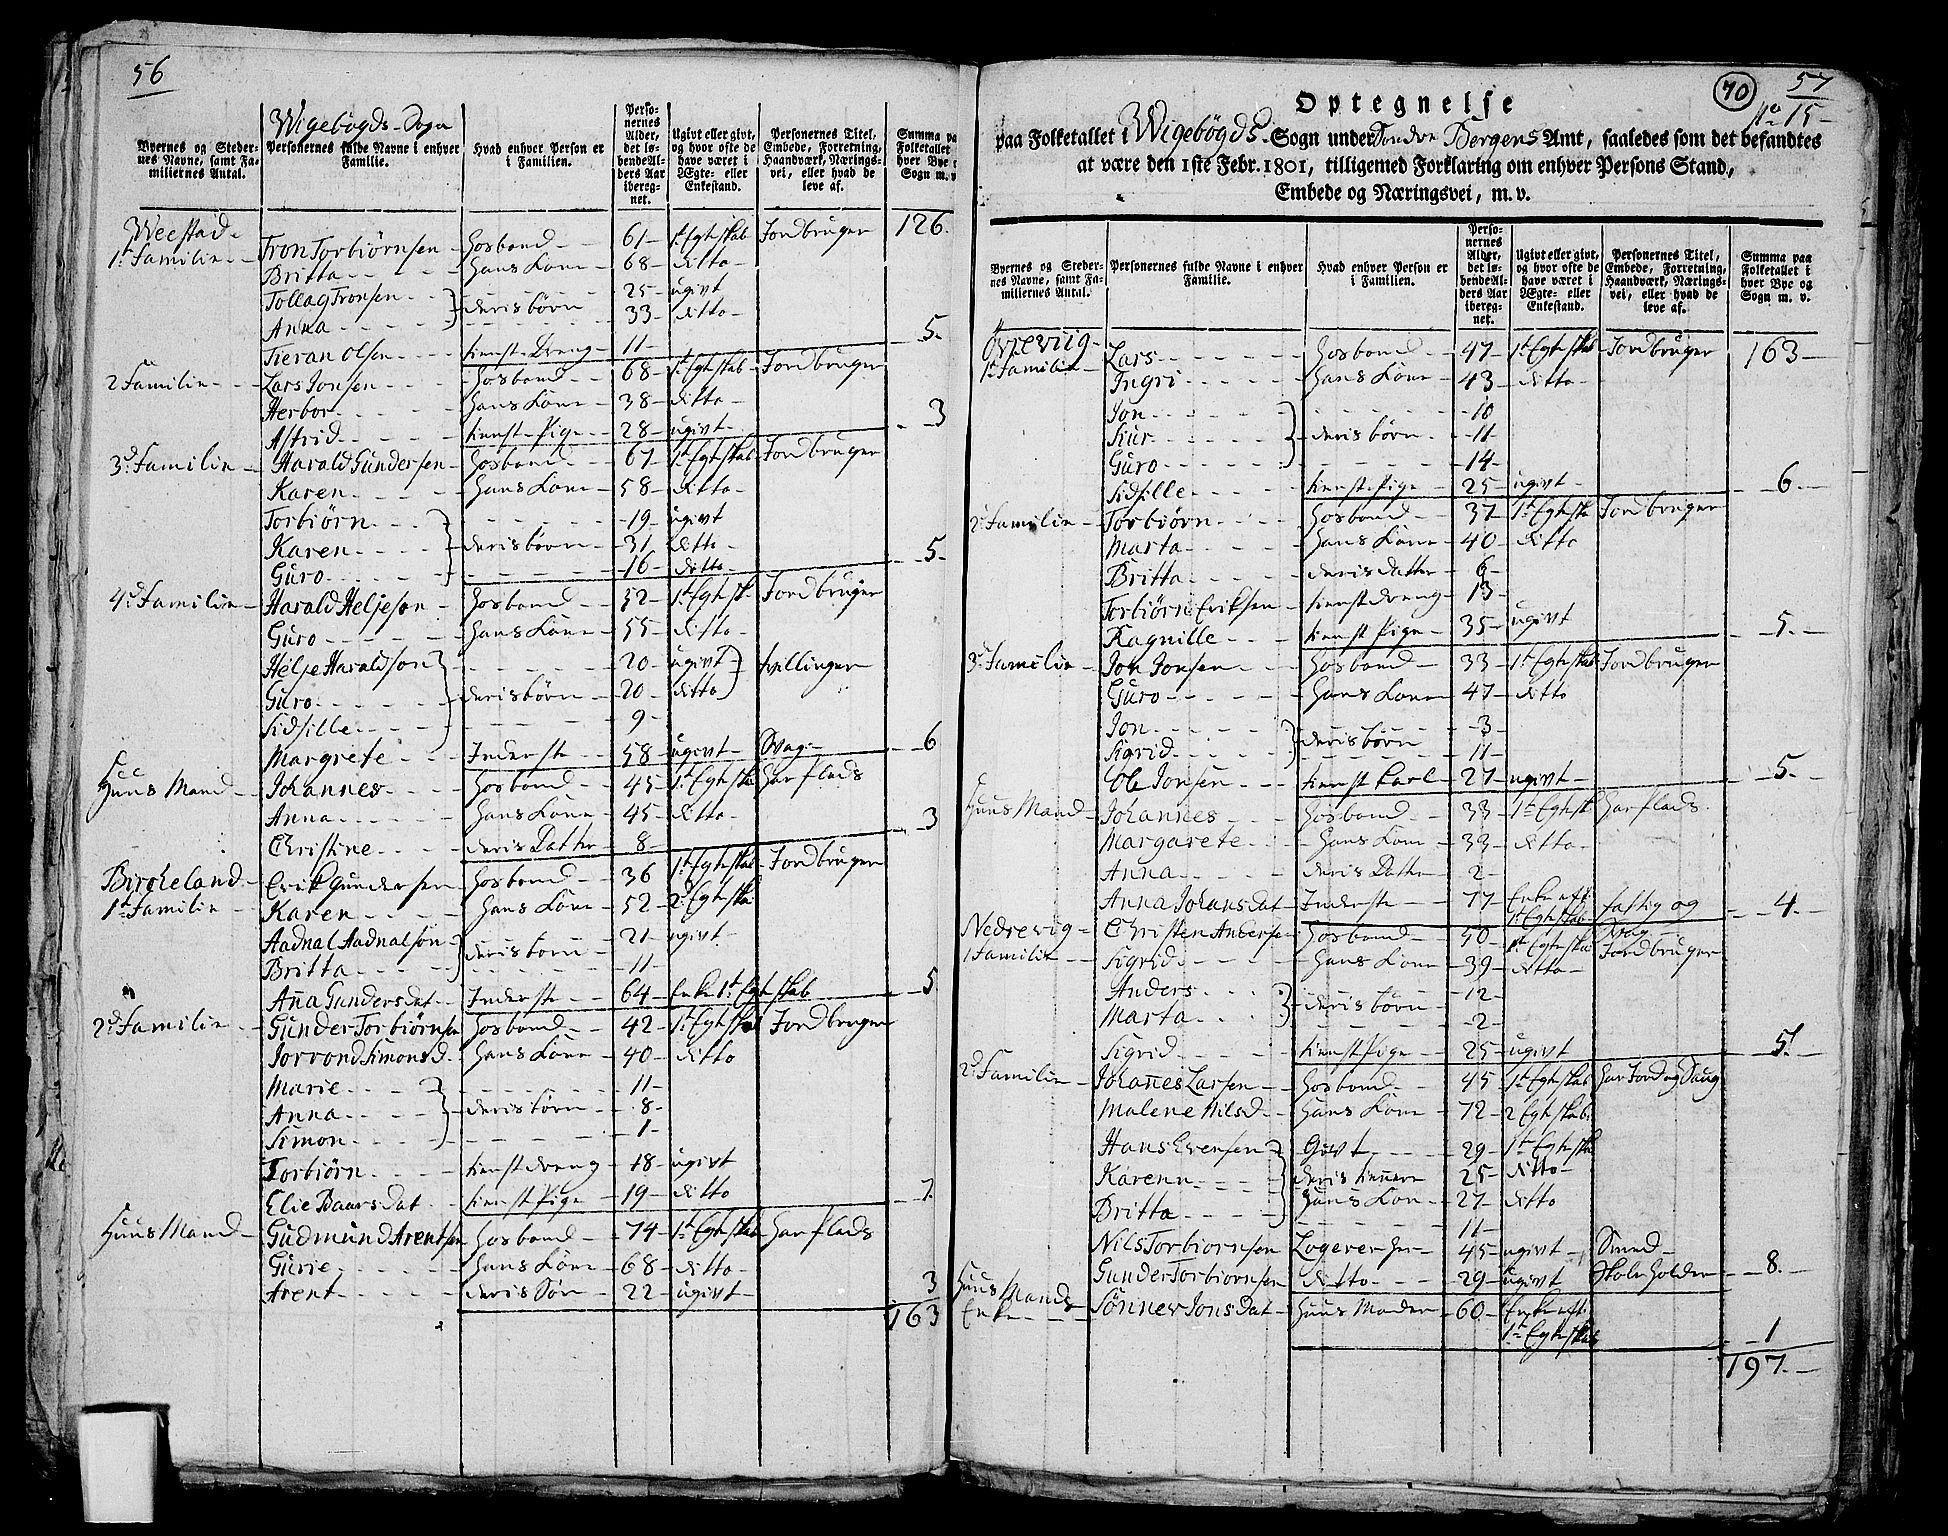 56
Wigebögds Sogn
Byernes og Steder-
nes Navne, samt Fa-
miliernes Antal.
Personernes fulde Navne i enhver
Familie.
Hvad enhver Person er
i Familien.
Perso-
nernes
Alder,
det lø-
bende Al-
ders Aar
ibereg-
net.
Ugivt eller givt,
og hvor ofte de
have været i
Ægte- eller
Enkestand.
Personernes Titel,
Embede, Forretning,
Haandværk, Nærings-
vei, eller hvad de
leve af.
Summa pa
Folketallet
hver Bye
Sogn m. v.
Weestad
1t Familie Tron Torbiörnsen Hosbond 61 1t Egteskab Jordbruger 126
Britta Hans Kone 68 ditto
Tollag Tronsen 25 ugivt
Anna deris börn 33 ditto
Tieran Olsen tienst Dreng 11 5
2 Familie Lars Jonsen Hosbond 68 1t Egteskab Jordbruger
Herbor Hans Kone 38 ditto
Astrid tienst Pige 28 ugivt 3
3d Familie Harald Gundersen Hosbond 67 1t Egteskab Jordbruger
Karen Hans Kone 58 ditto
Torbiörn 19 ugivt
Karen deris börn 31 ditto
Guro 16 ditto 5
4d Familie Harald Heljeson Hosbond 52 1t Egtesk Jordbruger
Guro Hans Kone 55 ditto
Helje Haraldson 20 ugivt tvillinger
Guro deris börn 20 ditto
Sidsille 9
Margrete Inderste 58 ugivt Svag 6
Huus Mand Johannes Hosbond 45 1t Egteska Har Plads
Anna Hans Kone 45 ditto
Christine deris Datter 8 3
Bircheland Erik Gundersen Hosbond 36 1t Egteskab Jordbruger
1t Familie Karen Hans Kone 52 2d Egteska
Aadnal Aadnalsön 21 ugivt
Britta deris börn 11
Anna Gundersdat Inderste 64 Enke 1t Egteskab 5
2d Familie Gunder Torbiörnsen Hosbond 42 1t Egteskab Jordbruger
Jorvond Simonsd Hans Kone 40 ditto
Marie 11
Anna deris börn 8
Simon 1
Torbiörn tienst dreng 18 ugivt
Elie Baarsdat tienst Pige 19 ditto 7
Huus Mand Gudmund Arentsen Hosbond 74 1t Egteskab Har Plads
Gurie Hans Kone 68 ditto
Arent deris Sön 22 ugivt 3
163
70
57
No 15
Optegnelse
paa Folketallet i Wigebögds Sogn under Söndre Bergens Amt, saaledes som det befandtes
at være den 1ste Febr. 1801, tilligemed Forklaring om enhver Persons Stand,
Embede og Næringsvei, m. v.
Byernes og Steder-
nes Navne, samt Fa-
miliernes Antal.
Personernes fulde Navne i enhver
Familie.
Hvad enhver Person er
i Familien.
Perso-
nernes
Alder,
det lø-
bende Al-
ders Aar
ibereg-
net.
Ugivt eller givt,
og hvor ofte de
have været i
Ægte- eller
Enkestand.
Personernes Titel,
Embede, Forretning,
Haandværk, Nærings-
vei, eller hvad de
leve af.
Summa paa
Folketallet i
hver Bye og
Sogn m. v.
Öfreviig
1t Familie Lars Hosbond 47 1t Egteskab Jordbruger 163
Ingri Hans Kone 43 ditto
Jon 10
Siur deris börn 11
Guro 14
Sidsille tienst Pige 25 ugivt 6
2d Familie Torbiörn Hosbond 37 1t Egteska Jordbruger
Marta Hans Kone 40 ditto
Britta deris Datter 6
Torbiörn Eriksen tienst dreng 13
Ragnille tienst Pige 35 ugivt 5
3d Familie Joh Jonsen Hosbond 33 1t Egteskab Jordbruger
Guro Hans Kone 47 ditto
Jon 3
Sigrid deris börn 11
Ole Jonsen tienst karl 27 ugivt 5
Huus Mand Johannes Hosbond 33 1t Egtesk Har Plads
Margarete Hans Kone 33 ditto
Anna deris Datter 2
Anna Johansdat Inderste 77 Enke eft. 1t Egteskab fattig og Svag 4
Nedrevig Christen Andersen Hosbond 50 1t Egteska Jordbruger
1 Familie Sigrid Hans Kone 39 ditto
Anders 12
Marta deris börn 2
Sigrid tienst Pige 25 ugivt 5
2d Familie Johannes Larsen Hosbond 45 1t Egteskab
Malene Nilsd Hans Kone 72 2 Egteskab
Hans Evensen Givt 29 1t Egteska
Karenn 25 ditto
Britta Hans Kon 27 ditto
11
Nils Torbiornsen Logerer her 45 ugivt Smed
Gunder Torbiornsen ditto 29 ugivt Skoleholder 8
Huus Mands
Enke Sönnev Jonsdat Huus Moder 60 Enke eft.
1t Egteskab 1
197